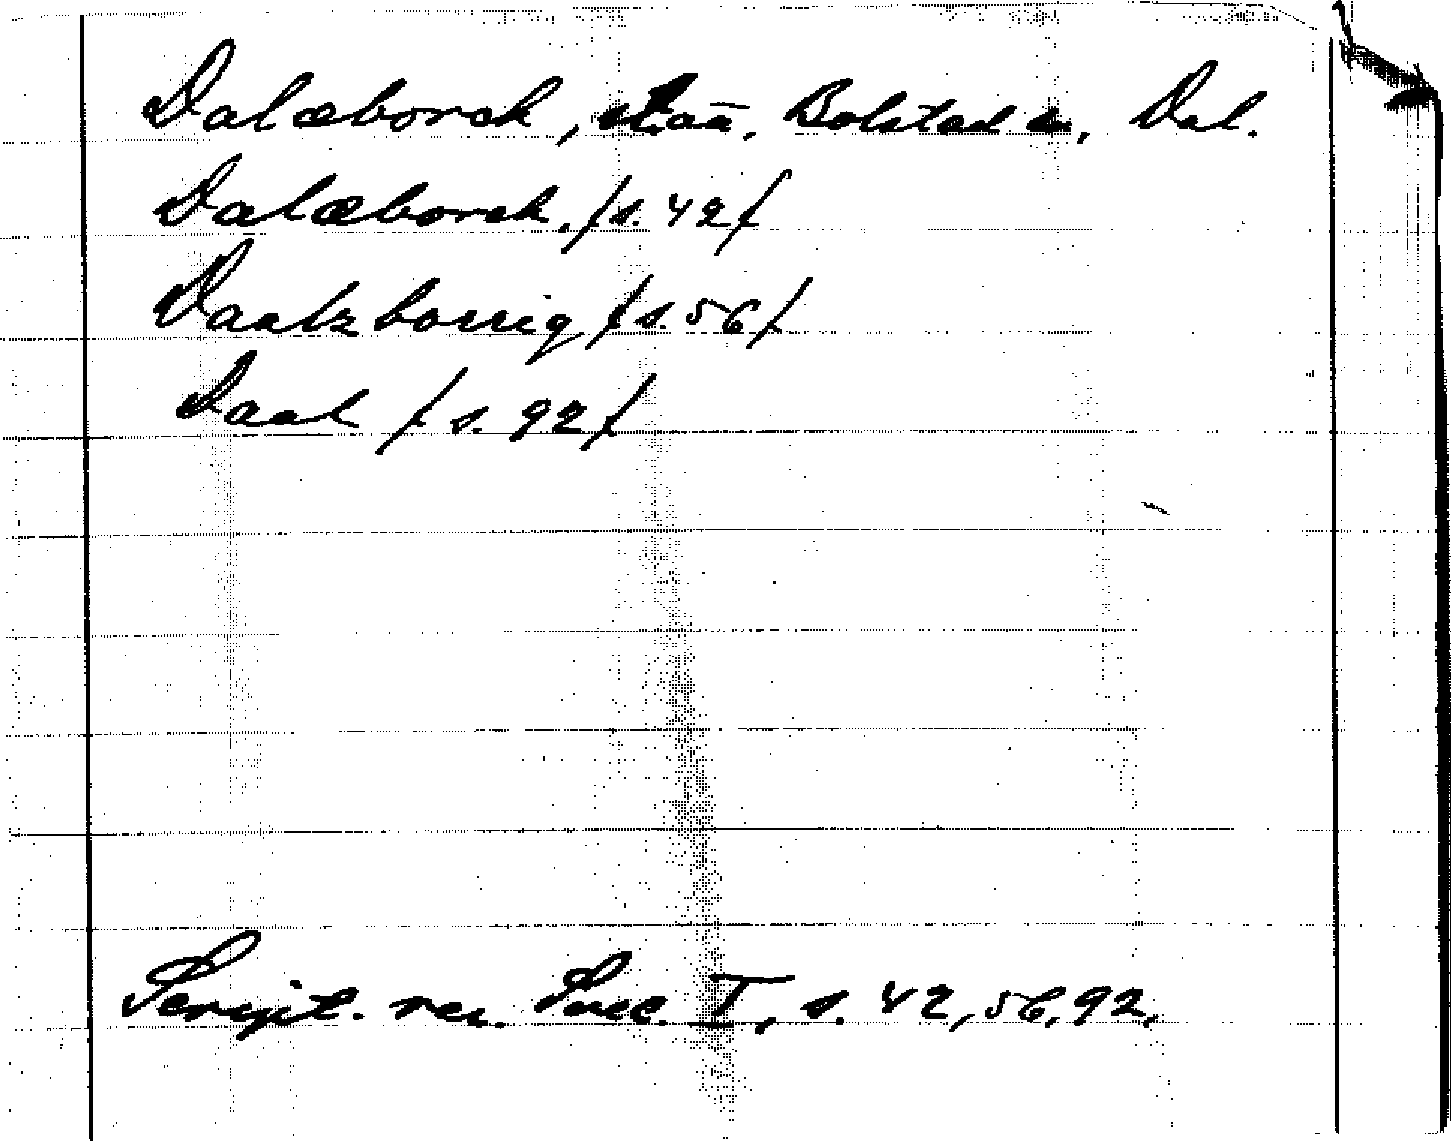 Dalæborch, Bolstad sn, Dal.
Dalæborch. /s. 42/
Daalzborrig /s. 56/
Daal /s. 92/
Script. rer. Svec. I, s. 42, 56, 92.